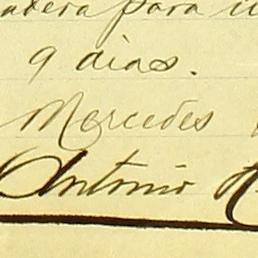 para
9 dias.
Mercedes
Antonio